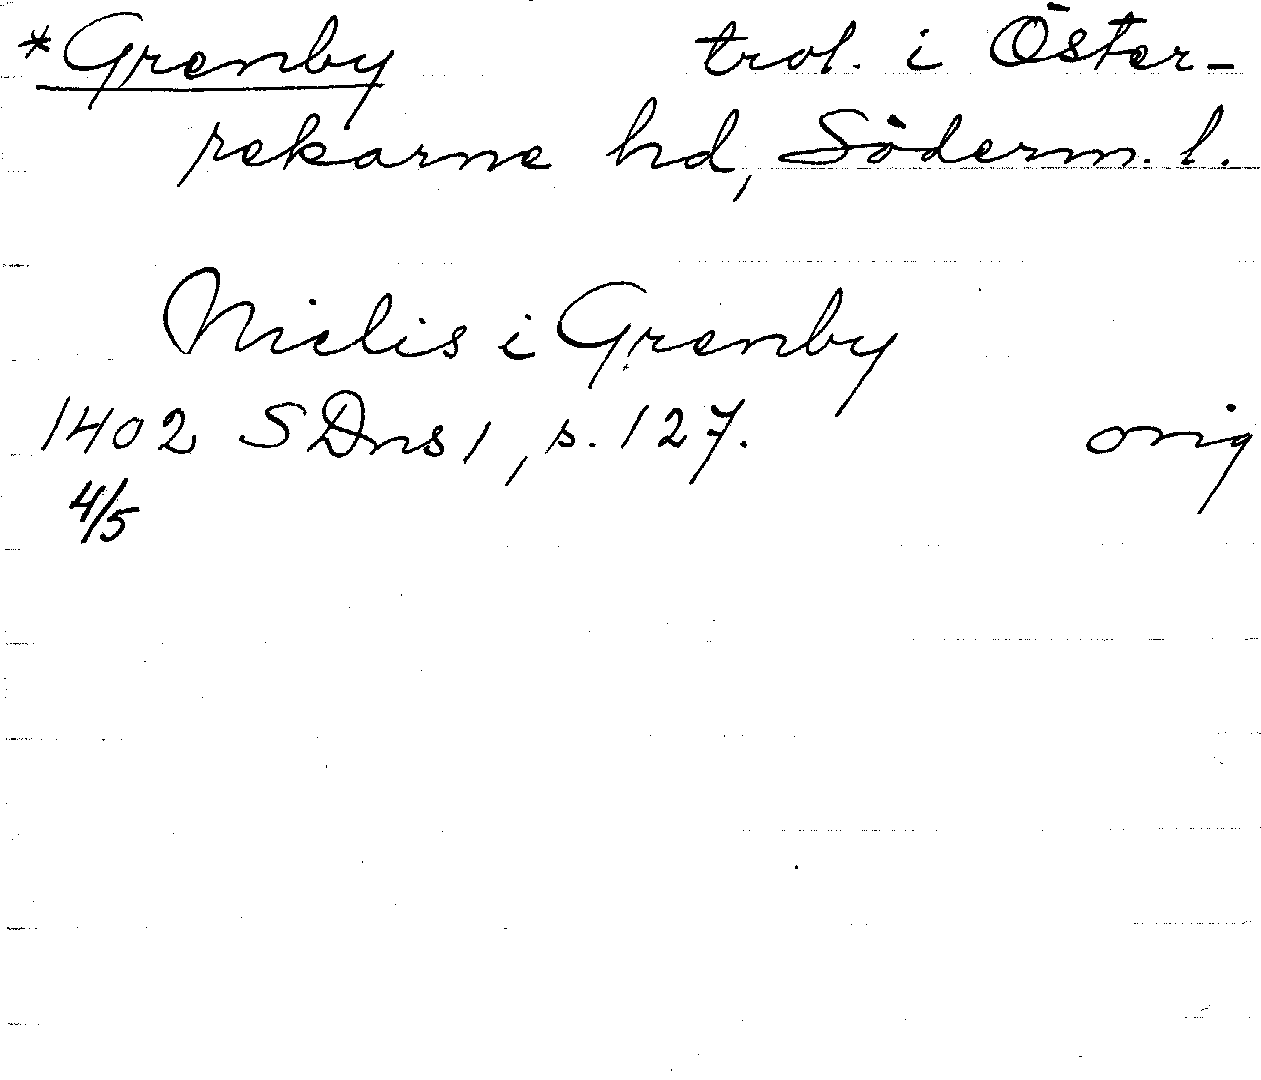 *Grenby trol. i Öster-
rekarne hd, Söderm. l.
Nielis i Grenby
1402 SDns 1, s. 127. orig
4/5